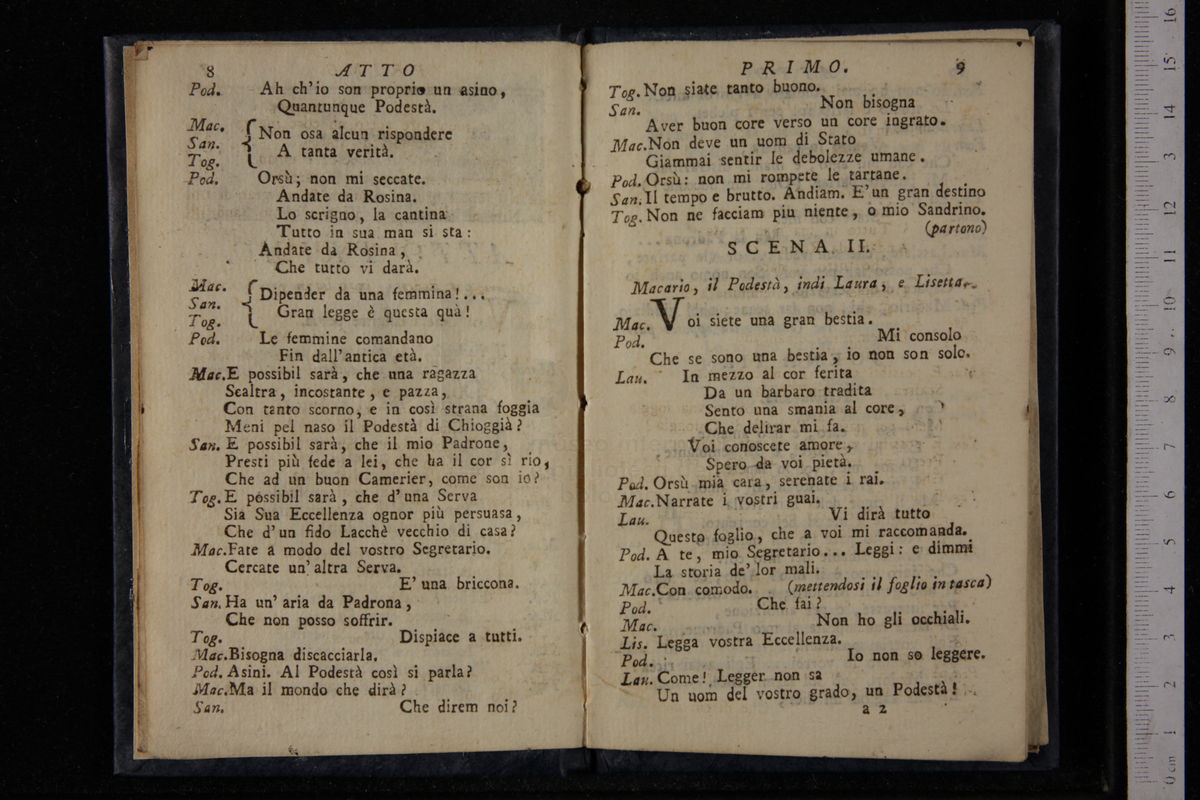 8 ATTO
Pod. Ah ch'io son proprio un asino,
Quantunque Podestà.
Mac.
San.
Tog.
Non osa alcun rispondere
A tanta verità.
Pod. Orsù; non mi seccate.
Andate da Rosina.
Lo scrigno, la cantina
Tutto in sua man si sta:
Andate da Rosina,
Che tutto vi darà.
Mac.
San.
Tog.
Dipender da una femmina!...
Gran legge è questa quà!
Pod. Le femmine comandano
Fin dall'antica età.
Mac. E possibil sarà, che una ragazza
Scaltra, incostante, e pazza,
Con tanto scorno, e in così strana foggia
Meni pel naso il Podestà di Chioggià?
San. E possibil sarà, che il mio Padrone,
Presti più fede a lei, che ha il cor sì rio,
Che ad un buon Camerier, come son io?
Tog. E possibil sarà, che d'una Serva
Sia Sua Eccellenza ognor più persuasa,
Che d'un fido Lacchè vecchio di casa?
Mac. Fate a modo del vostro Segretario.
Cercate un' altra Serva.
Tog. E' una briccona.
San. Ha un' aria da Padrona,
Che non posso soffrir.
Tog. Dispiace a tutti.
Mac. Bisogna discacciarla.
Pod. Asini. Al Podestà così si parla?
Mac. Ma il mondo che dirà?
San. Che direm noi?
PRIMO. 9
Tog. Non siate tanto buono.
San. Non bisogna
Aver buon core verso un core ingrato.
Mac. Non deve un uom di Stato
Giammai sentir le debolezze umane.
Pod. Orsù: non mi rompete le tartane.
San. Il tempo e brutto. Andiam. E' un gran destino
Tog. Non ne facciam piu niente, o mio Sandrino.
(partono)
SCENA II.
Macario, il Podestà, indi Laura, e Lisetta.
Mac. Voi siete una gran bestia.
Pod. Mi consolo
Che se sono una bestia, io non son solo.
Lau. In mezzo al cor ferita
Da un barbaro tradita
Sento una smania al core,
Che delirar mi fa.
Voi conoscete amore,
Spero da voi pietà.
Pod. Orsù mia cara, serenate i rai.
Mac. Narrate i vostri guai.
Lau. Vi dirà tutto
Questo foglio, che a voi mi raccomanda.
Pod. A te, mio Segretario... Leggi: e dimmi
La storia de' lor mali.
Mac. Con comodo. (mettendosi il foglio in tasca)
Pod. Che fai?
Mac. Non ho gli occhiali.
Lis. Legga vostra Eccellenza.
Pod. Io non so leggere.
Lau. Come! Legger non sa
Un uom del vostro grado, un Podestà!
a 2
0 cm 1 2 3 4 5 6 7 8 9 10 11 12 13 14 15 16